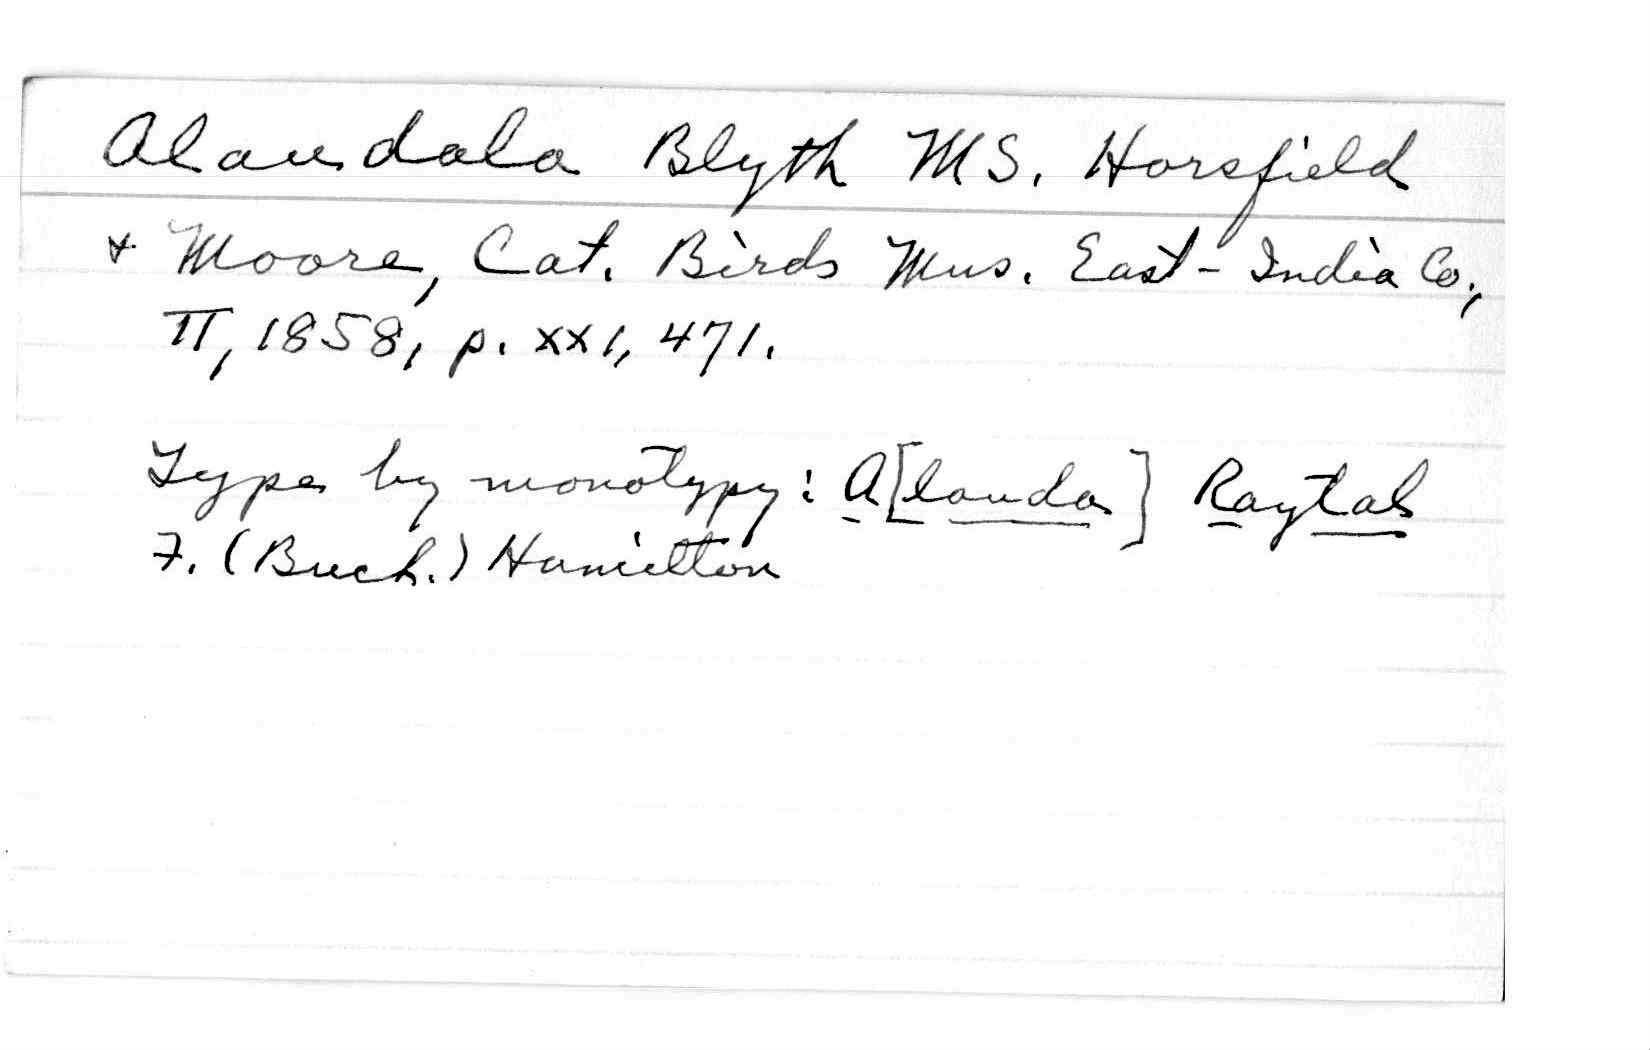 Alaudala Blyth MS. Horsfield
+ Moore, Cat. Birds Mus. East-India Co.,
II, 1858, p. xxi, 471.
Type by monotypy: A[lauda] Raytal
F. (Buch.) Hamilton